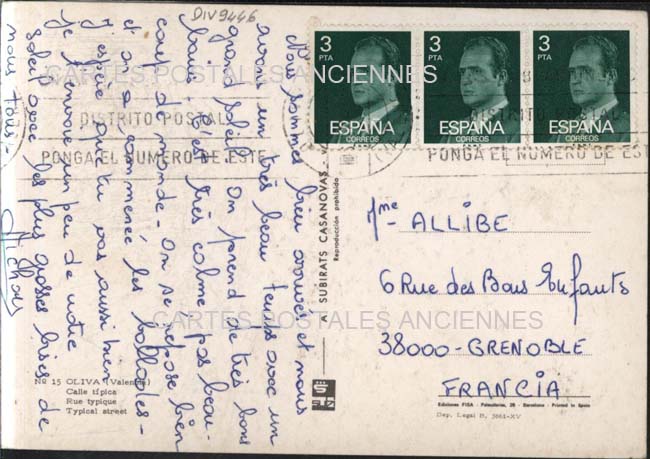 DIV9446
Nous sommes bien arrivés et nous
avons un très beau temps avec un
grand soleil. On prend de très bons
bains. C'est très calme, pas beau-
coup de monde. On se repose bien
et on a commencé les ballades.
J'espère que tu vas aussi bien.
Je t'envoie un peu de notre
Soleil avec les plus grosses bises de
nous tous.
CARTES POSTALES ANCIENNES
DISTRITO POSTAL
PONGA EL NUMERO DE ESTE
DISTRITO POSTAL
PONGA EL NUMERO DE ESTE
3
PTA
ESPAÑA
CORREOS
3
PTA
ESPAÑA
CORREOS
3
PTA
ESPAÑA
CORREOS
A. SUBIRATS CASANOVAS
Reproducción prohibida
Mme ALLIBE
6 Rue des Bons Enfants
38000-GRENOBLE
FRANCIA
CARTES POSTALES ANCIENNES
Nº 15 OLIVA (Valencia)
Calle típica
Rue typique
Typical street
Ediciones FISA - Palaudarias, 26 - Barcelona - Printed in Spain
Dep. Legal B. 3861-XV